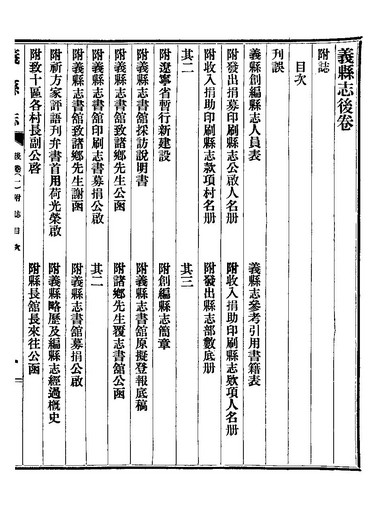 義縣志後卷
附誌
目次
刋誤
義縣創編縣志人員表
義縣志參考引用書籍表
附發出捐募印刷縣志公啟人名册
附收入捐助印刷縣志欵項人名册
附收入捐助印刷縣志欵項村名册
附發出縣志部數底册
其二
其三
附遼寧省暫行新建設
附創編縣志簡章
附義縣志書館採訪說明書
附義縣志書館原擬登報底稿
附義縣志書館致諸鄉先生公函
附諸鄉先生覆志書舘公函
附義縣志書館印刷志書募捐公啟
其二
附義縣志書館致諸鄉先生謝函
附義縣志書館募捐公啟
附祈方家評語刋弁書首用荷光榮啟
附義縣略歷及編縣志經過概史
附致十區各村長副公啓
附縣長館長來往公函
義縣志
後卷
附誌目次
一